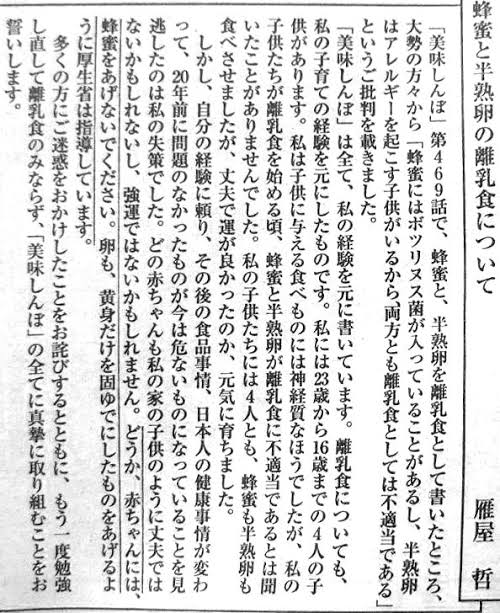 蜂蜜と半熟卵の離乳食について
雁屋 哲
「美味しんぼ」第469話で、蜂蜜と、半熟卵を離乳食として書いたところ、
大勢の方々から「蜂蜜にはボツリヌス菌が入っていることがあるし、半熟卵
はアレルギーを起こす子供がいるから、両方とも離乳食としては不適当である」
というご批判を戴きました。
「美味しんぼ」は全て、私の経験を元に書いています。離乳食についても、
私の子育ての経験を元にしたものです。私には23歳から16歳までの4人の子
供があります。私は子供に与える食べものには神経質なほうでしたが、私の
子供たちが離乳食を始める頃、蜂蜜と半熟卵が離乳食に不適当であるとは聞
いたことがありませんでした。私の子供たちには4人とも、蜂蜜も半熟卵も
食べさせましたが、丈夫で運が良かったのか、元気に育ちました。
しかし、自分の経験に頼り、その後の食品事情、日本人の健康事情が変わ
って、20年前に問題のなかったものが今は危ないものになっていることを見
逃したのは私の失策でした。どの赤ちゃんも私の家の子供のように丈夫では
ないかもしれないし、強運ではないかもしれません。どうか、赤ちゃんには、
蜂蜜をあげないでください。卵も、黄身だけを固ゆでにしたものをあげるよ
うに厚生省は指導しています。
多くの方にご迷惑をおかけしたことをお詫びするとともに、もう一度勉強
し直して離乳食のみならず、「美味しんぼ」の全てに真摯に取り組むことをお
誓いします。